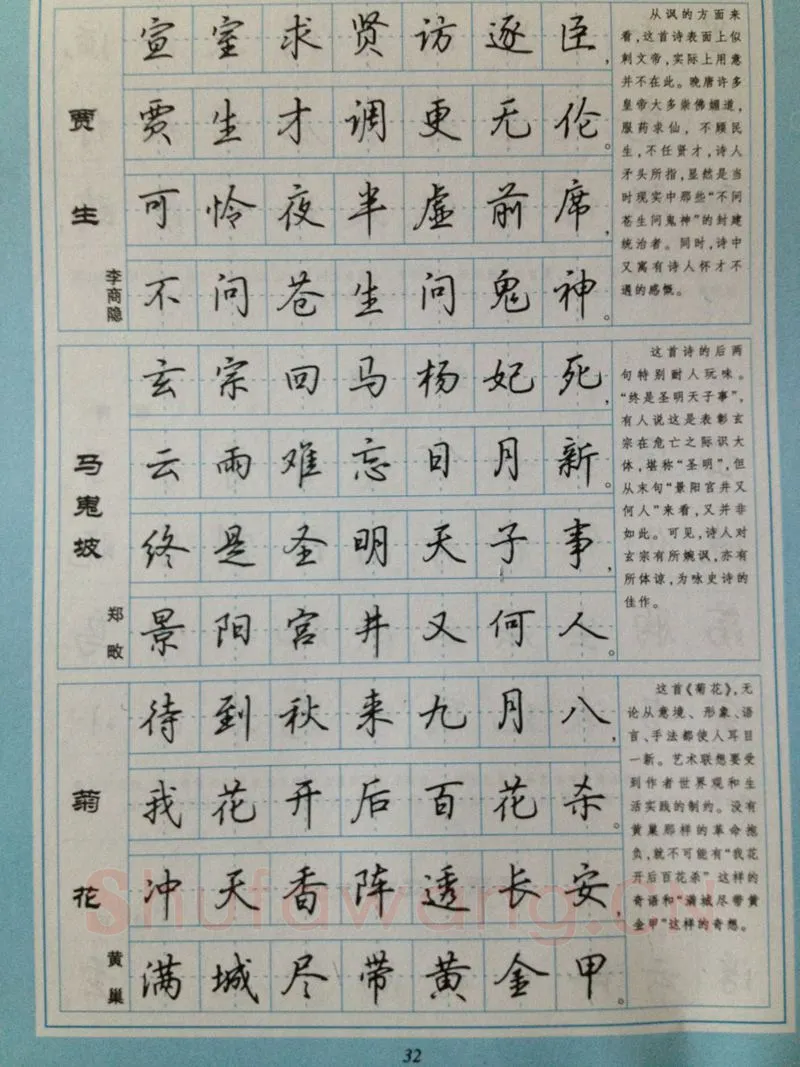 贾生
李商隐
宣室求贤访逐臣，
贾生才调更无伦。
可怜夜半虚前席，
不问苍生问鬼神。
从讽的方面来
看，这首诗表面上似
刺文帝，实际上用意
并不在此。晚唐许多
皇帝大多崇佛媚道，
服药求仙，不顾民
生，不任贤才，诗人
矛头所指，显然是当
时现实中那些“不问
苍生问鬼神”的封建
统治者。同时，诗中
又寓有诗人怀才不
遇的感慨。
马嵬坡
郑畋
玄宗回马杨妃死，
云雨难忘日月新。
终是圣明天子事，
景阳宫井又何人。
这首诗的后两
句特别耐人玩味。
“终是圣明天子事”，
有人说这是表彰玄
宗在危亡之际识大
体，堪称“圣明”，但
从末句“景阳宫井又
何人”来看，又并非
如此。可见，诗人对
玄宗有所婉讽，亦有
所体谅，为咏史诗的
佳作。
菊花
黄巢
待到秋来九月八，
我花开后百花杀。
冲天香阵透长安，
满城尽带黄金甲。
这首《菊花》，无
论从意境、形象、语
言、手法都使人耳目
一新。艺术联想要受
到作者世界观和生
活实践的制约。没有
黄巢那样的革命抱
负，就不可能有“我花
开后百花杀”这样的
奇语和“满城尽带黄
金甲”这样的奇想。
32